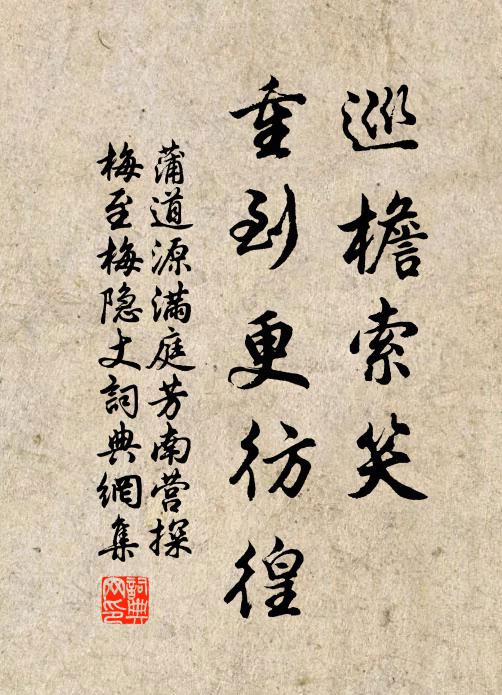 巡檐索笑
重到更彷徨
蒲道源满庭芳南营探
梅至梅隐丈詞典網集
詞典网印